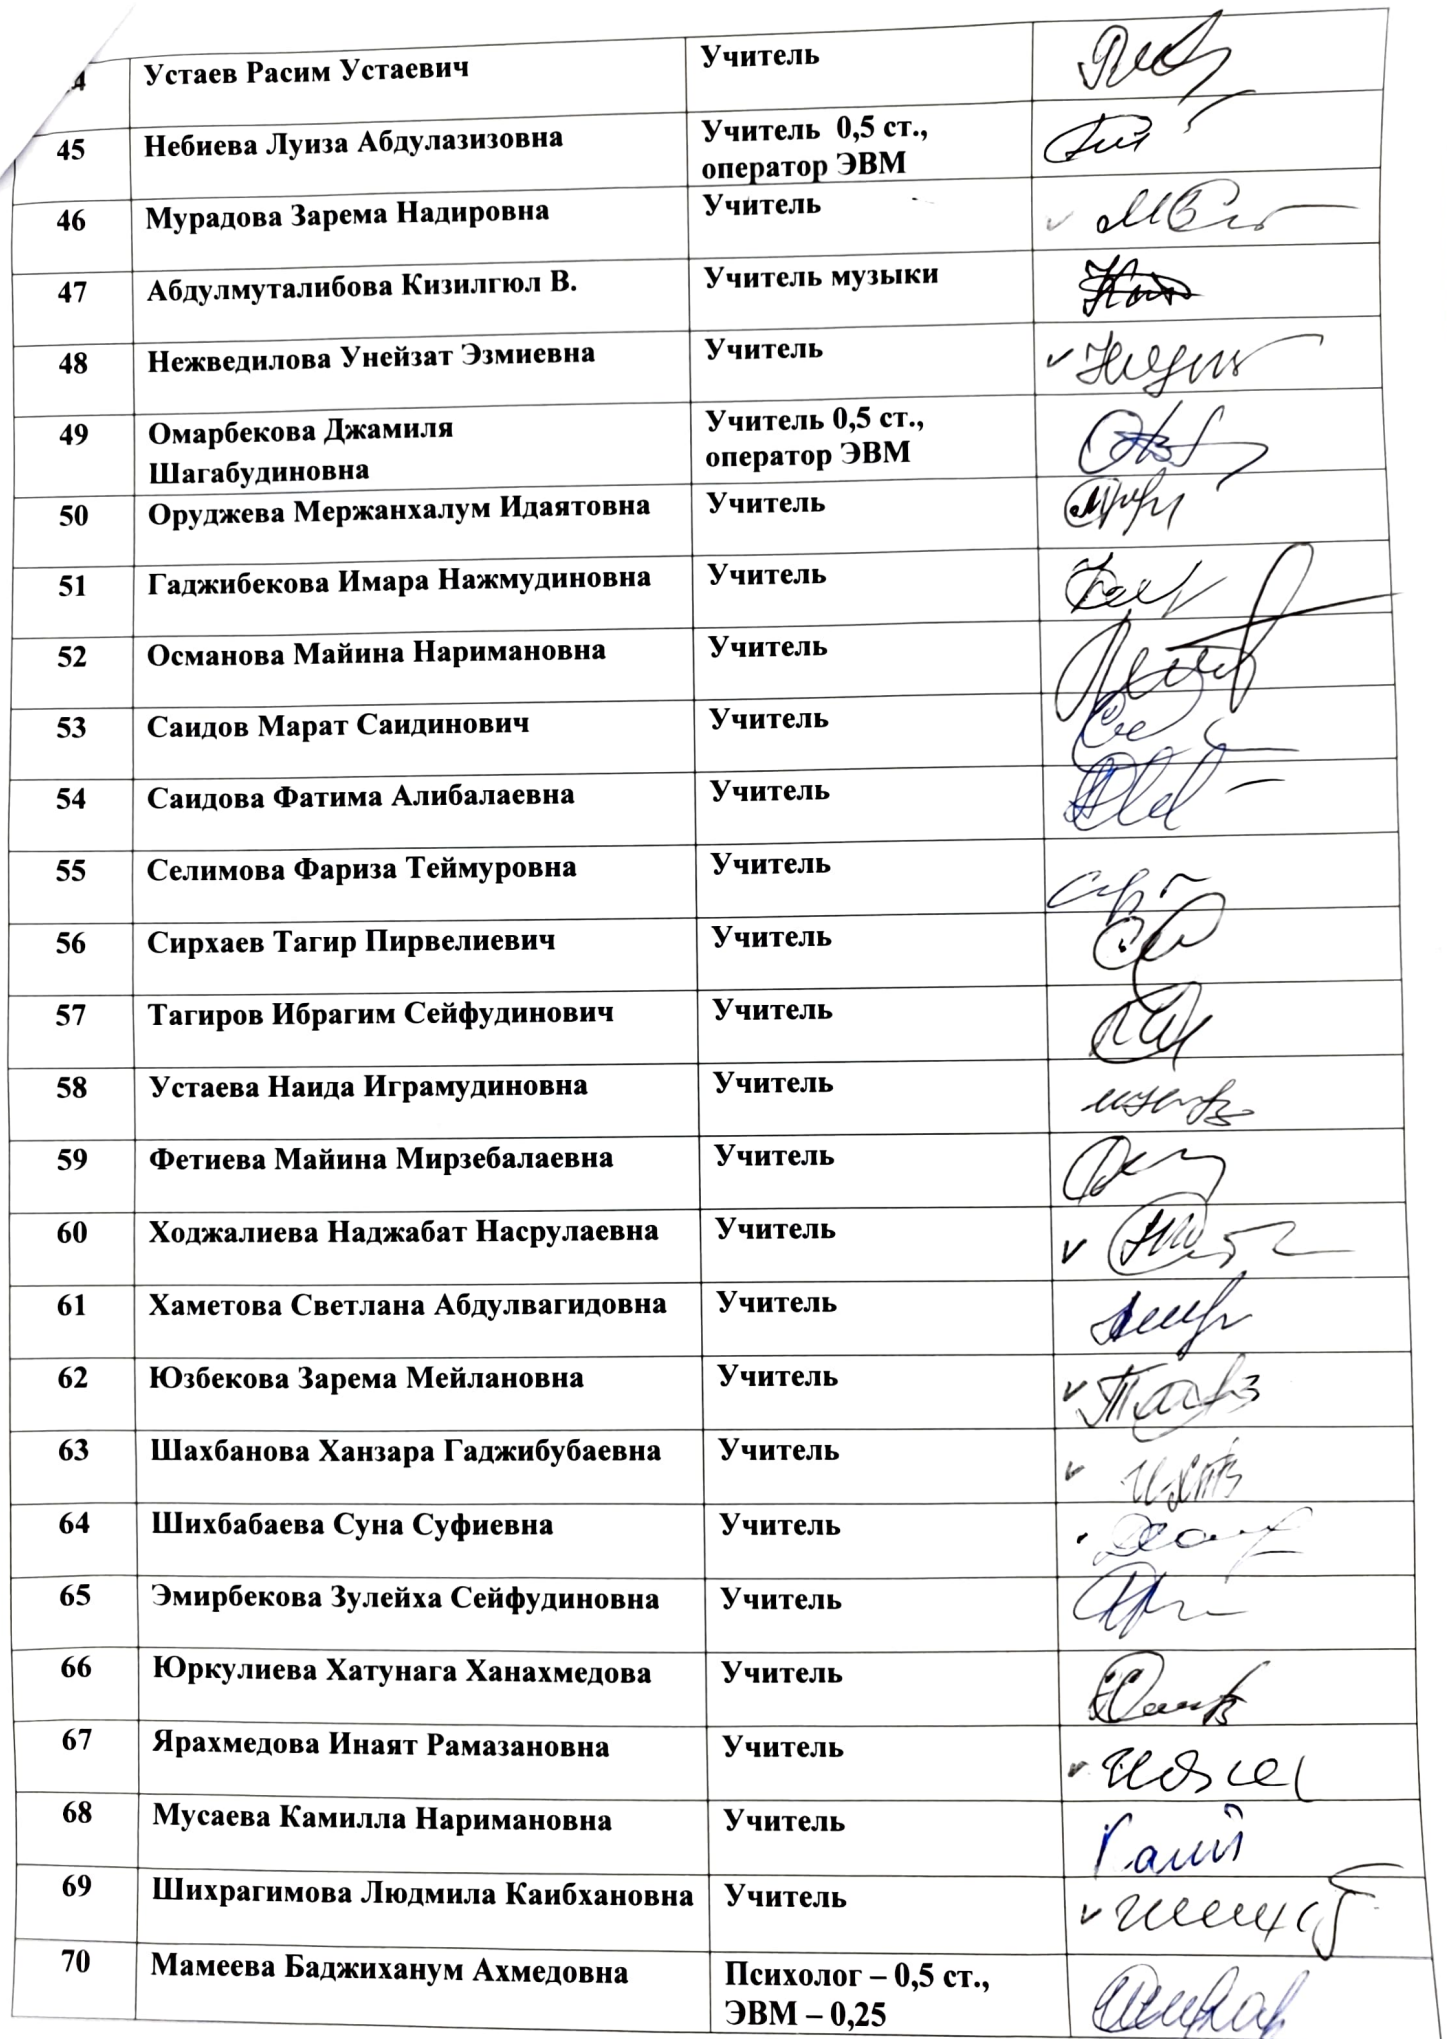 4 Устаев Расим Устаевич Учитель
45 Небиева Луиза Абдулазизовна Учитель 0,5 ст.,
оператор ЭВМ
46 Мурадова Зарема Надировна Учитель
47 Абдулмуталибова Кизилгюл В. Учитель музыки
48 Нежведилова Унейзат Эзмиевна Учитель
49 Омарбекова Джамиля Учитель 0,5 ст.,
Шагабудиновна оператор ЭВМ
50 Оруджева Мержанхалум Идаятовна Учитель
51 Гаджибекова Имара Нажмудиновна Учитель
52 Османова Майина Наримановна Учитель
53 Саидов Марат Саидинович Учитель
54 Саидова Фатима Алибалаевна Учитель
55 Селимова Фариза Теймуровна Учитель
56 Сирхаев Тагир Пирвелиевич Учитель
57 Тагиров Ибрагим Сейфудинович Учитель
58 Устаева Наида Играмудиновна Учитель
59 Фетиева Майина Мирзебалаевна Учитель
60 Ходжалиева Наджабат Насрулаевна Учитель
61 Хаметова Светлана Абдулвагидовна Учитель
62 Юзбекова Зарема Мейлановна Учитель
63 Шахбанова Ханзара Гаджибубаевна Учитель
64 Шихбабаева Суна Суфиевна Учитель
65 Эмирбекова Зулейха Сейфудиновна Учитель
66 Юркулиева Хатунага Ханахмедова Учитель
67 Ярахмедова Инаят Рамазановна Учитель
68 Мусаева Камилла Наримановна Учитель
69 Шихрагимова Людмила Каибхановна Учитель
70 Мамеева Баджиханум Ахмедовна Психолог – 0,5 ст.,
ЭВМ – 0,25